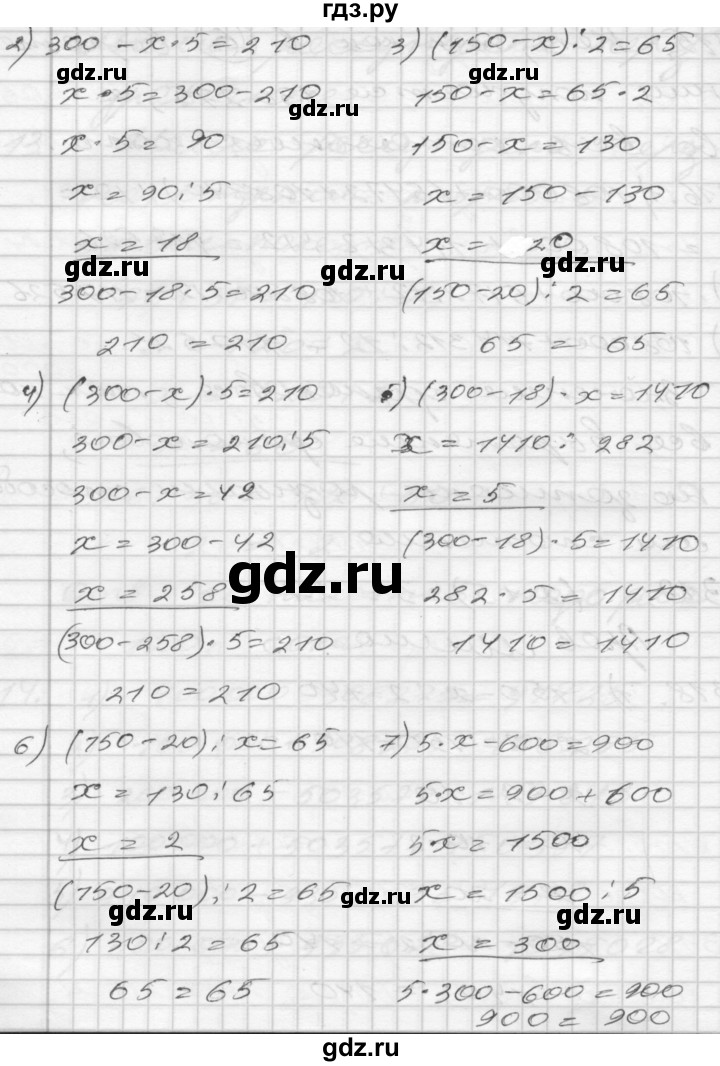 гдз.ру
2) 300 - x · 5 = 210
x · 5 = 300 - 210
x · 5 = 90
x = 90 : 5
x = 18
300 - 18 · 5 = 210
210 = 210
3) (150 - x) : 2 = 65
150 - x = 65 · 2
150 - x = 130
x = 150 - 130
x = 20
(150 - 20) : 2 = 65
65 = 65
4) (300 - x) · 5 = 210
300 - x = 210 : 5
300 - x = 42
x = 300 - 42
x = 258
(300 - 258) · 5 = 210
210 = 210
5) (300 - 18) · x = 1410
x = 1410 : 282
x = 5
(300 - 18) · 5 = 1410
282 · 5 = 1410
1410 = 1410
6) (150 - 20) : x = 65
x = 130 : 65
x = 2
(150 - 20) : 2 = 65
130 : 2 = 65
65 = 65
7) 5 · x - 600 = 900
5 · x = 900 + 600
5 · x = 1500
x = 1500 : 5
x = 300
5 · 300 - 600 = 900
900 = 900
gdz.ru
gdz.ru
gdz.ru
gdz.ru
gdz.ru
gdz.ru
gdz.ru
gdz.ru
gdz.ru
gdz.ru
gdz.ru
gdz.ru
gdz.ru